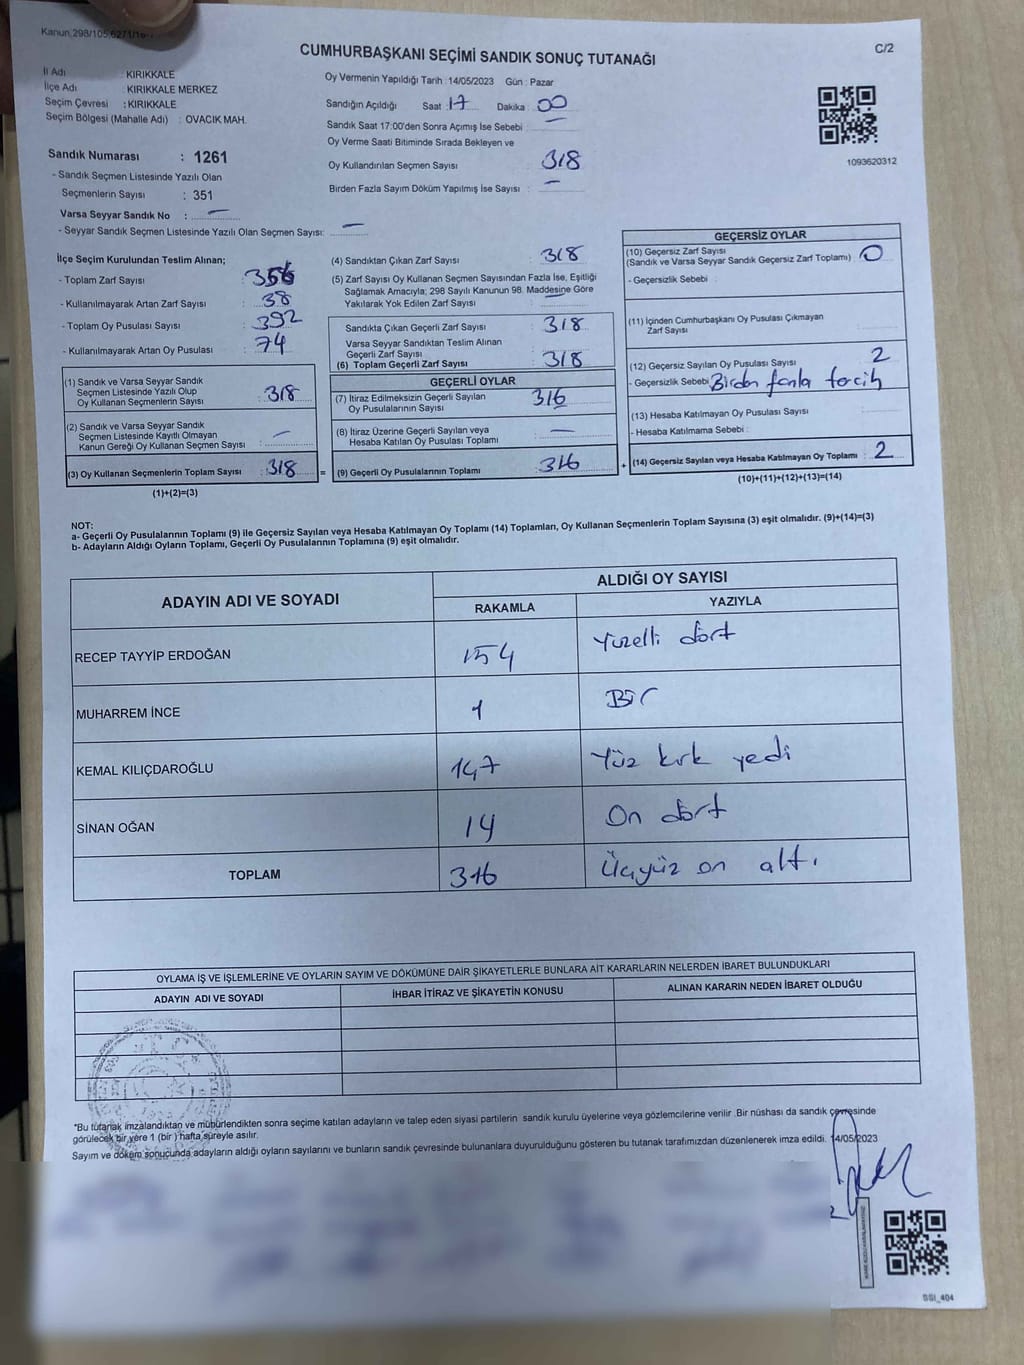 Kanun 298/105,6271/16-
CUMHURBAŞKANI SEÇİMİ SANDIK SONUÇ TUTANAĞI
C/2
İl Adı : KIRIKKALE
İlçe Adı : KIRIKKALE MERKEZ
Seçim Çevresi : KIRIKKALE
Seçim Bölgesi (Mahalle Adı) : OVACIK MAH.
Oy Vermenin Yapıldığı Tarih : 14/05/2023 Gün : Pazar
Sandığın Açıldığı Saat : 17 Dakika : 00
Sandık Saat 17:00'den Sonra Açımış İse Sebebi : —
Oy Verme Saati Bitiminde Sırada Bekleyen ve
Oy Kullandırılan Seçmen Sayısı : 318
Birden Fazla Sayım Döküm Yapılmış İse Sayısı : —
1093620312
Sandık Numarası : 1261
- Sandık Seçmen Listesinde Yazılı Olan
Seçmenlerin Sayısı : 351
Varsa Seyyar Sandık No : —
- Seyyar Sandık Seçmen Listesinde Yazılı Olan Seçmen Sayısı: —
İlçe Seçim Kurulundan Teslim Alınan;
- Toplam Zarf Sayısı : 356
- Kullanılmayarak Artan Zarf Sayısı : 38
- Toplam Oy Pusulası Sayısı : 392
- Kullanılmayarak Artan Oy Pusulası : 74
(1) Sandık ve Varsa Seyyar Sandık
Seçmen Listesinde Yazılı Olup
Oy Kullanan Seçmenlerin Sayısı : 318
(2) Sandık ve Varsa Seyyar Sandık
Seçmen Listesinde Kayıtlı Olmayan
Kanun Gereği Oy Kullanan Seçmen Sayısı : —
(3) Oy Kullanan Seçmenlerin Toplam Sayısı : 318
(1)+(2)=(3)
(4) Sandıktan Çıkan Zarf Sayısı : 318
(5) Zarf Sayısı Oy Kullanan Seçmen Sayısından Fazla İse, Eşitliği
Sağlamak Amacıyla; 298 Sayılı Kanunun 98. Maddesine Göre
Yakılarak Yok Edilen Zarf Sayısı : —
Sandıkta Çıkan Geçerli Zarf Sayısı : 318
Varsa Seyyar Sandıktan Teslim Alınan
Geçerli Zarf Sayısı
(6) Toplam Geçerli Zarf Sayısı : 318
GEÇERLİ OYLAR
(7) İtiraz Edilmeksizin Geçerli Sayılan
Oy Pusulalarının Sayısı : 316
(8) İtiraz Üzerine Geçerli Sayılan veya
Hesaba Katılan Oy Pusulası Toplamı : —
= (9) Geçerli Oy Pusulalarının Toplamı : 316
GEÇERSİZ OYLAR
(10) Geçersiz Zarf Sayısı
(Sandık ve Varsa Seyyar Sandık Geçersiz Zarf Toplamı) : 0
- Geçersizlik Sebebi :
(11) İçinden Cumhurbaşkanı Oy Pusulası Çıkmayan
Zarf Sayısı :
(12) Geçersiz Sayılan Oy Pusulası Sayısı : 2
- Geçersizlik Sebebi : Birden fazla tercih
(13) Hesaba Katılmayan Oy Pusulası Sayısı :
- Hesaba Katılmama Sebebi :
+ (14) Geçersiz Sayılan veya Hesaba Katılmayan Oy Toplamı : 2
(10)+(11)+(12)+(13)=(14)
NOT:
a- Geçerli Oy Pusulalarının Toplamı (9) ile Geçersiz Sayılan veya Hesaba Katılmayan Oy Toplamı (14) Toplamları, Oy Kullanan Seçmenlerin Toplam Sayısına (3) eşit olmalıdır. (9)+(14)=(3)
b- Adayların Aldığı Oyların Toplamı, Geçerli Oy Pusulalarının Toplamına (9) eşit olmalıdır.
ADAYIN ADI VE SOYADI
ALDIĞI OY SAYISI
RAKAMLA YAZIYLA
RECEP TAYYİP ERDOĞAN 154 Yüzelli dört
MUHARREM İNCE 1 Bir
KEMAL KILIÇDAROĞLU 147 Yüz kırk yedi
SİNAN OĞAN 14 On dört
TOPLAM 316 Üçyüz on altı
OYLAMA İŞ VE İŞLEMLERİNE VE OYLARIN SAYIM VE DÖKÜMÜNE DAİR ŞİKAYETLERLE BUNLARA AİT KARARLARIN NELERDEN İBARET BULUNDUKLARI
ADAYIN ADI VE SOYADI İHBAR İTİRAZ VE ŞİKAYETİN KONUSU ALINAN KARARIN NEDEN İBARET OLDUĞU
*Bu tutanak imzalandıktan ve mühürlendikten sonra seçime katılan adayların ve talep eden siyasi partilerin sandık kurulu üyelerine veya gözlemcilerine verilir .Bir nüshası da sandık çevresinde
görülecek bir yere 1 (bir ) hafta süreyle asılır.
Sayım ve döküm sonucunda adayların aldığı oyların sayılarını ve bunların sandık çevresinde bulunanlara duyurulduğunu gösteren bu tutanak tarafımızdan düzenlenerek imza edildi. 14/05/2023
SSI_404